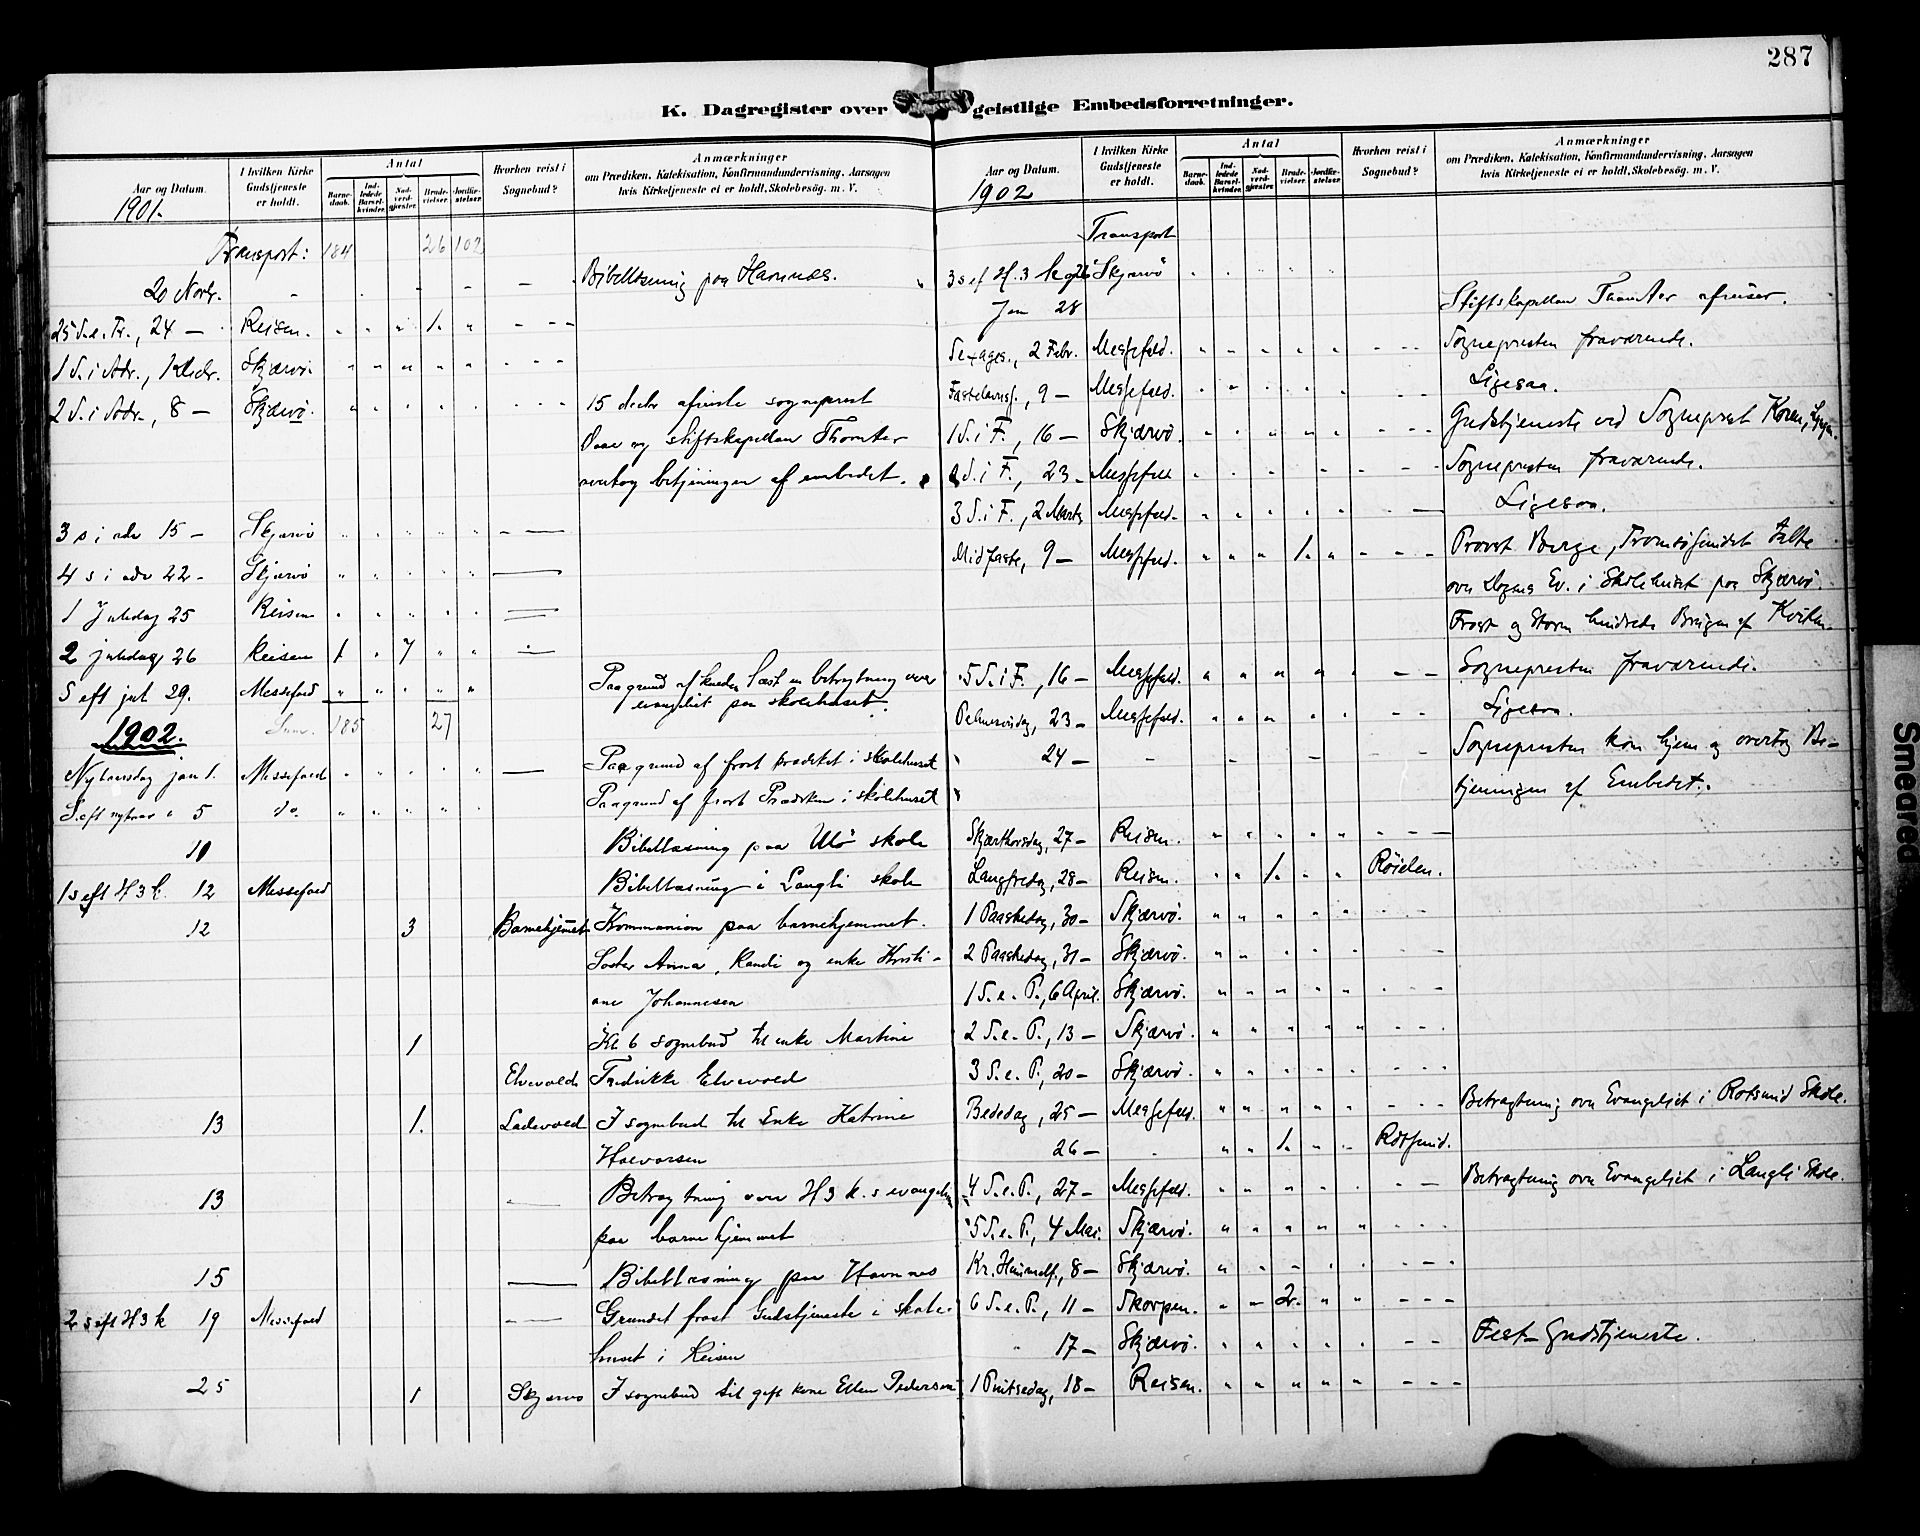 287
K. Dagregister over geistlige Embedsforretninger.
Aar og Datum. 1901.
I hvilken Kirke Gudstjeneste er holdt.
Antal
Barnedaab.
Indledede Barselkvinder.
Nadverdgjester.
Brudevielser.
Jordfæstelser.
Hvorhen reist i Sognebud?
Anmærkninger
om Prædiken, Katekisation, Konfirmandundervisning, Aarsagen
hvis Kirketjeneste ei er holdt, Skolebesøg. m. V.
Transport: 184 26 102
20 Novbr. - Bibellæsning paa Havnnæs.
25 S. e. Tr., 24 — Reisen. " " " 1. " - - -
1 S. i Adv., 1 Decbr. Skjærvö. " " " " " - - -
2 S. i Adv., 8 — Skjærvö. " " " " " - - - 15 decbr afreiste sogneprest
Daae og stiftskapellan Thomter
overtog betjeningen af embedet.
3 s i adv 15 — Skjærvö " " " " " —
4 s i adv 22 - Skjærvö " " " " " —
1 Juledag 25 Reisen " " " " " —
2 juledag 26 Reisen 1 " 7 " " —
S eft jul 29. Messefald " " " " " Paa grund af kulden læst en betragtning over
evangeliet paa skolehuset.
Sum. 185 27
1902.
Nytaarsdag jan 1. Messefald " " " " " — Paa grund af frost prædiket i skolehuset
S. eft nytaar " 5 do. " " " " " Paagrund af frost Prædiken i skolehuset
10 Bibellæsning paa Ulö skole
1 s eft H 3 k. 12 Messefald Bibellæsning i Langli skole
12 3 Barnehjemmet Kommunion paa barnehjemmet.
Söster Anna, Kandi og enke Kristi-
ane Johannesen
1 Kl 6 sognebud til enke Martine
Elvevold Fredrikke Elvevold
13 1. Ladevold I sognebud til Enke Katrine
Halvorsen
13 - Betragtning over H 3 k. s evangelium
paa barnehjemmet
15 — Bibellæsning paa Havnnes
2 s eft H 3 k 19 Messefald - Grundet frost Gudstjeneste i skole-
huset i Reisen
25 1 Skjærvö I sognebud til gift kone Ellen Pedersen
Aar og Datum. 1902
I hvilken Kirke Gudstjeneste er holdt.
Antal
Barnedaab.
Indledede Barselkvinder.
Nadverdgjester.
Brudevielser.
Jordfæstelser.
Hvorhen reist i Sognebud?
Anmærkninger
om Prædiken, Katekisation, Konfirmandundervisning, Aarsagen
hvis Kirketjeneste ei er holdt, Skolebesøg. m. V.
Transport
3 s ef H. 3 k og 26 Skjærvö " " " " "
Jan 28 Stiftskapellan Thomter afreiser.
Sexages., 2 Febr. Messefald. " " " " " - - - Sognepresten fraværende.
Fastelavnss., 9 — Messefald. " " " " " - - - Ligesaa.
1 S. i F., 16 — Skjærvö. " " " " " - - - Gudstjeneste ved Sogneprest Koren, Lyngen.
2 S. i F., 23 — Messefald " " " " " - - - Sognepresten fraværende.
3 S. i F., 2 Marts Messefald. " " " " " - — Ligesaa.
Midfaste, 9 — Messefald. " " " 1. " - - - Provst Berge, Tromsösundet talte
over Dagens Ev. i Skolehuset paa Skjærvö.
Frost og Storm hindrede Brugen af Kirken.
5 S. i F., 16 — Messefald. " " " " " - — Sognepresten fraværende.
Palmesöndag, 23 — Messefald. " " " " " - - Ligesaa.
24 — - - - - - Sognepresten kom hjem og overtog Be-
tjeningen af Embedet.
Skjærthorsdag, 27 — Reisen. " " " " " - - —
Langfredag, 28 — Reisen. " " 1. " " Röielen.
1 Paaskedag, 30 — Skjærvö. " " " " " - - -
2 Paaskedag, 31 — Skjærvö. " " " " " - - -
1 S. e. P., 6 April. Skjærvö. " " " " " - - -
2 S. e. P., 13 — Skjærvö. " " " " " - - -
3 S. e. P., 20 — Skjærvö. " " " " " - - -
Bededag, 25 — Messefald. " " " " " - - - Betragtning over Evangeliet i Rotsund Skole.
26 — - " " 1. " - Rotsund.
4 S. e. P., 27 — Messefald. " " " " " - — Betragtning over Evangeliet i Langli Skole.
5 S. e. P., 4 Mai. Skjærvö. " " " " " - - -
Kr. Himmelf., 8 — Skjærvö. " " " " " - - -
6 S. e. P., 11 — Skorpen. " " 2. " " - - -
17 — Skjærvö. " " " " " - — Fest-Gudstjeneste.
1 Pintsedag, 18 — Reisen. " " " " " - - -
Smeared